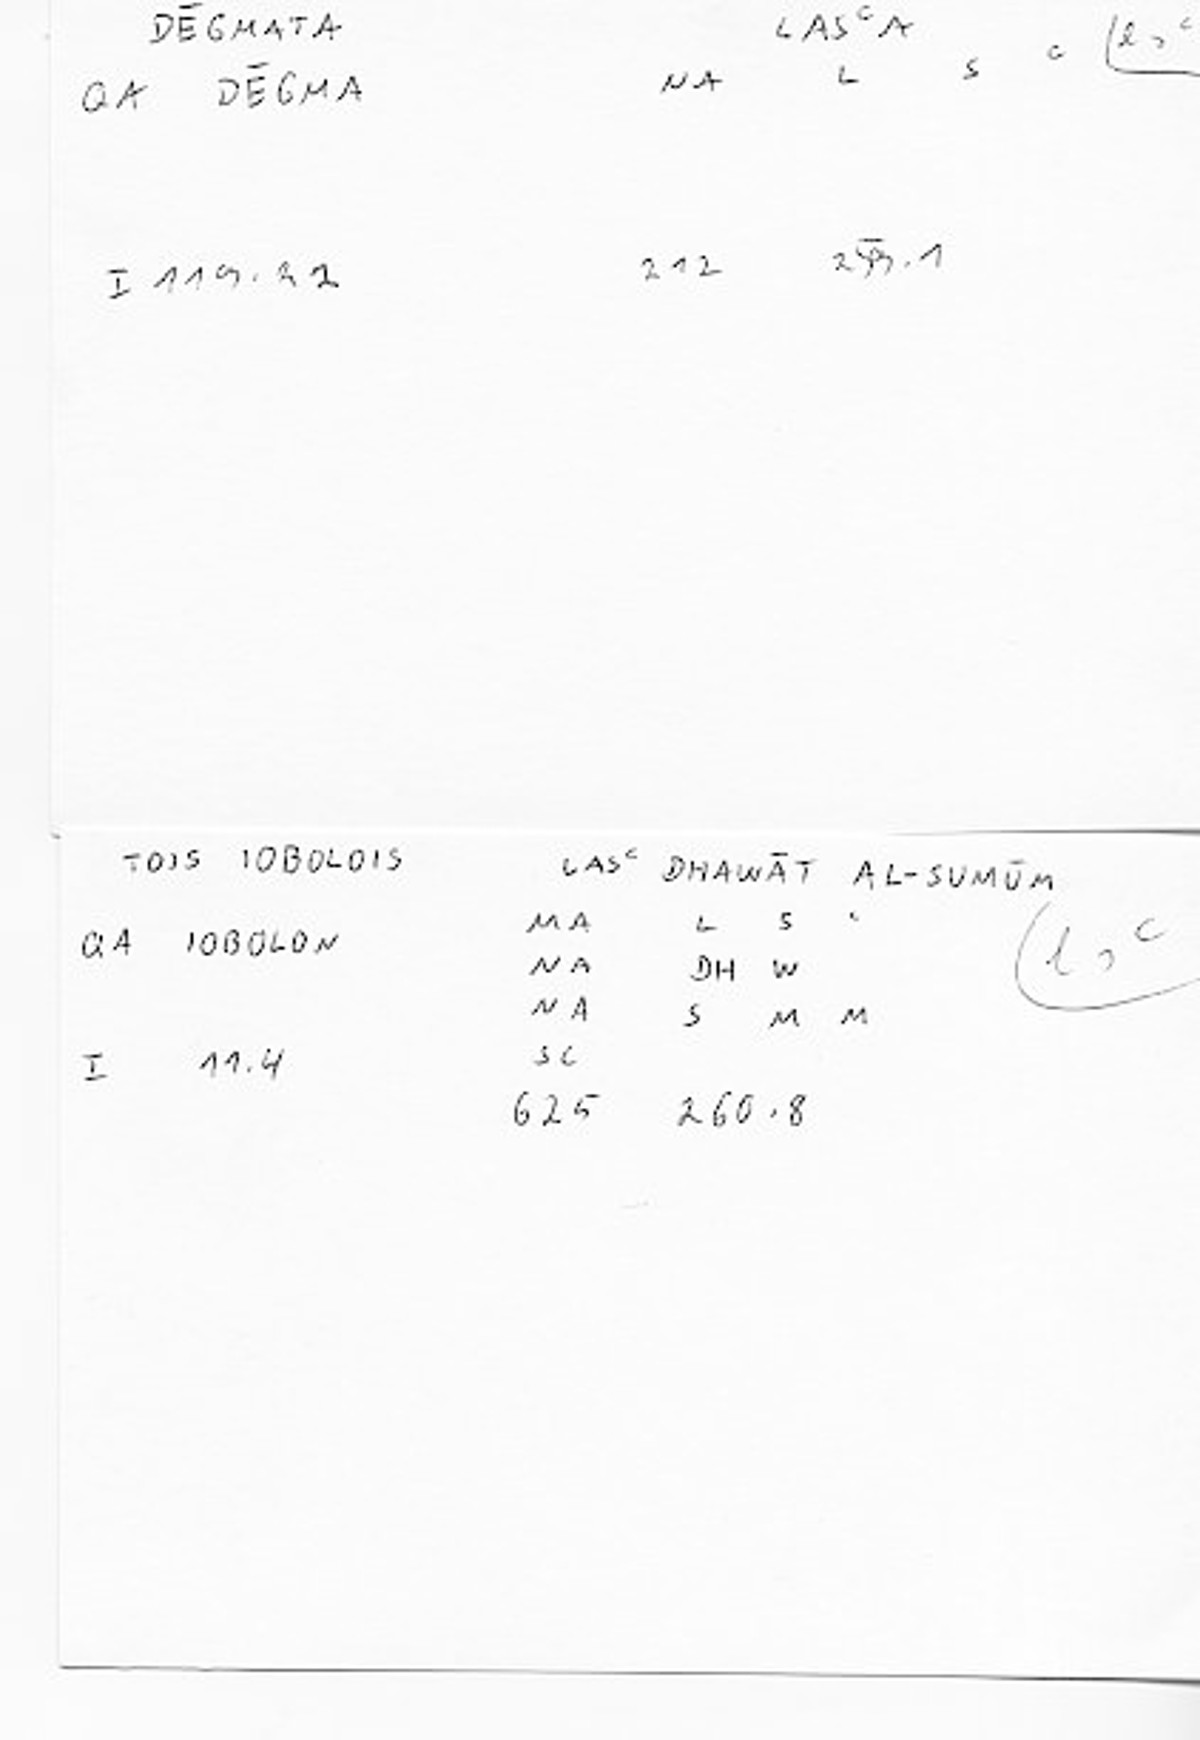 DĒGMATA LASᶜA
QA DĒGMA NA L S ᶜ (lsᶜ
I 119.22 212
TOIS IOBOLOIS LASᶜ DHAWĀT AL-SUMŪM
MA L S ᶜ
QA IOBOLON NA DH W (lsᶜ
NA S M M
I 11.4 SC
625 260.8